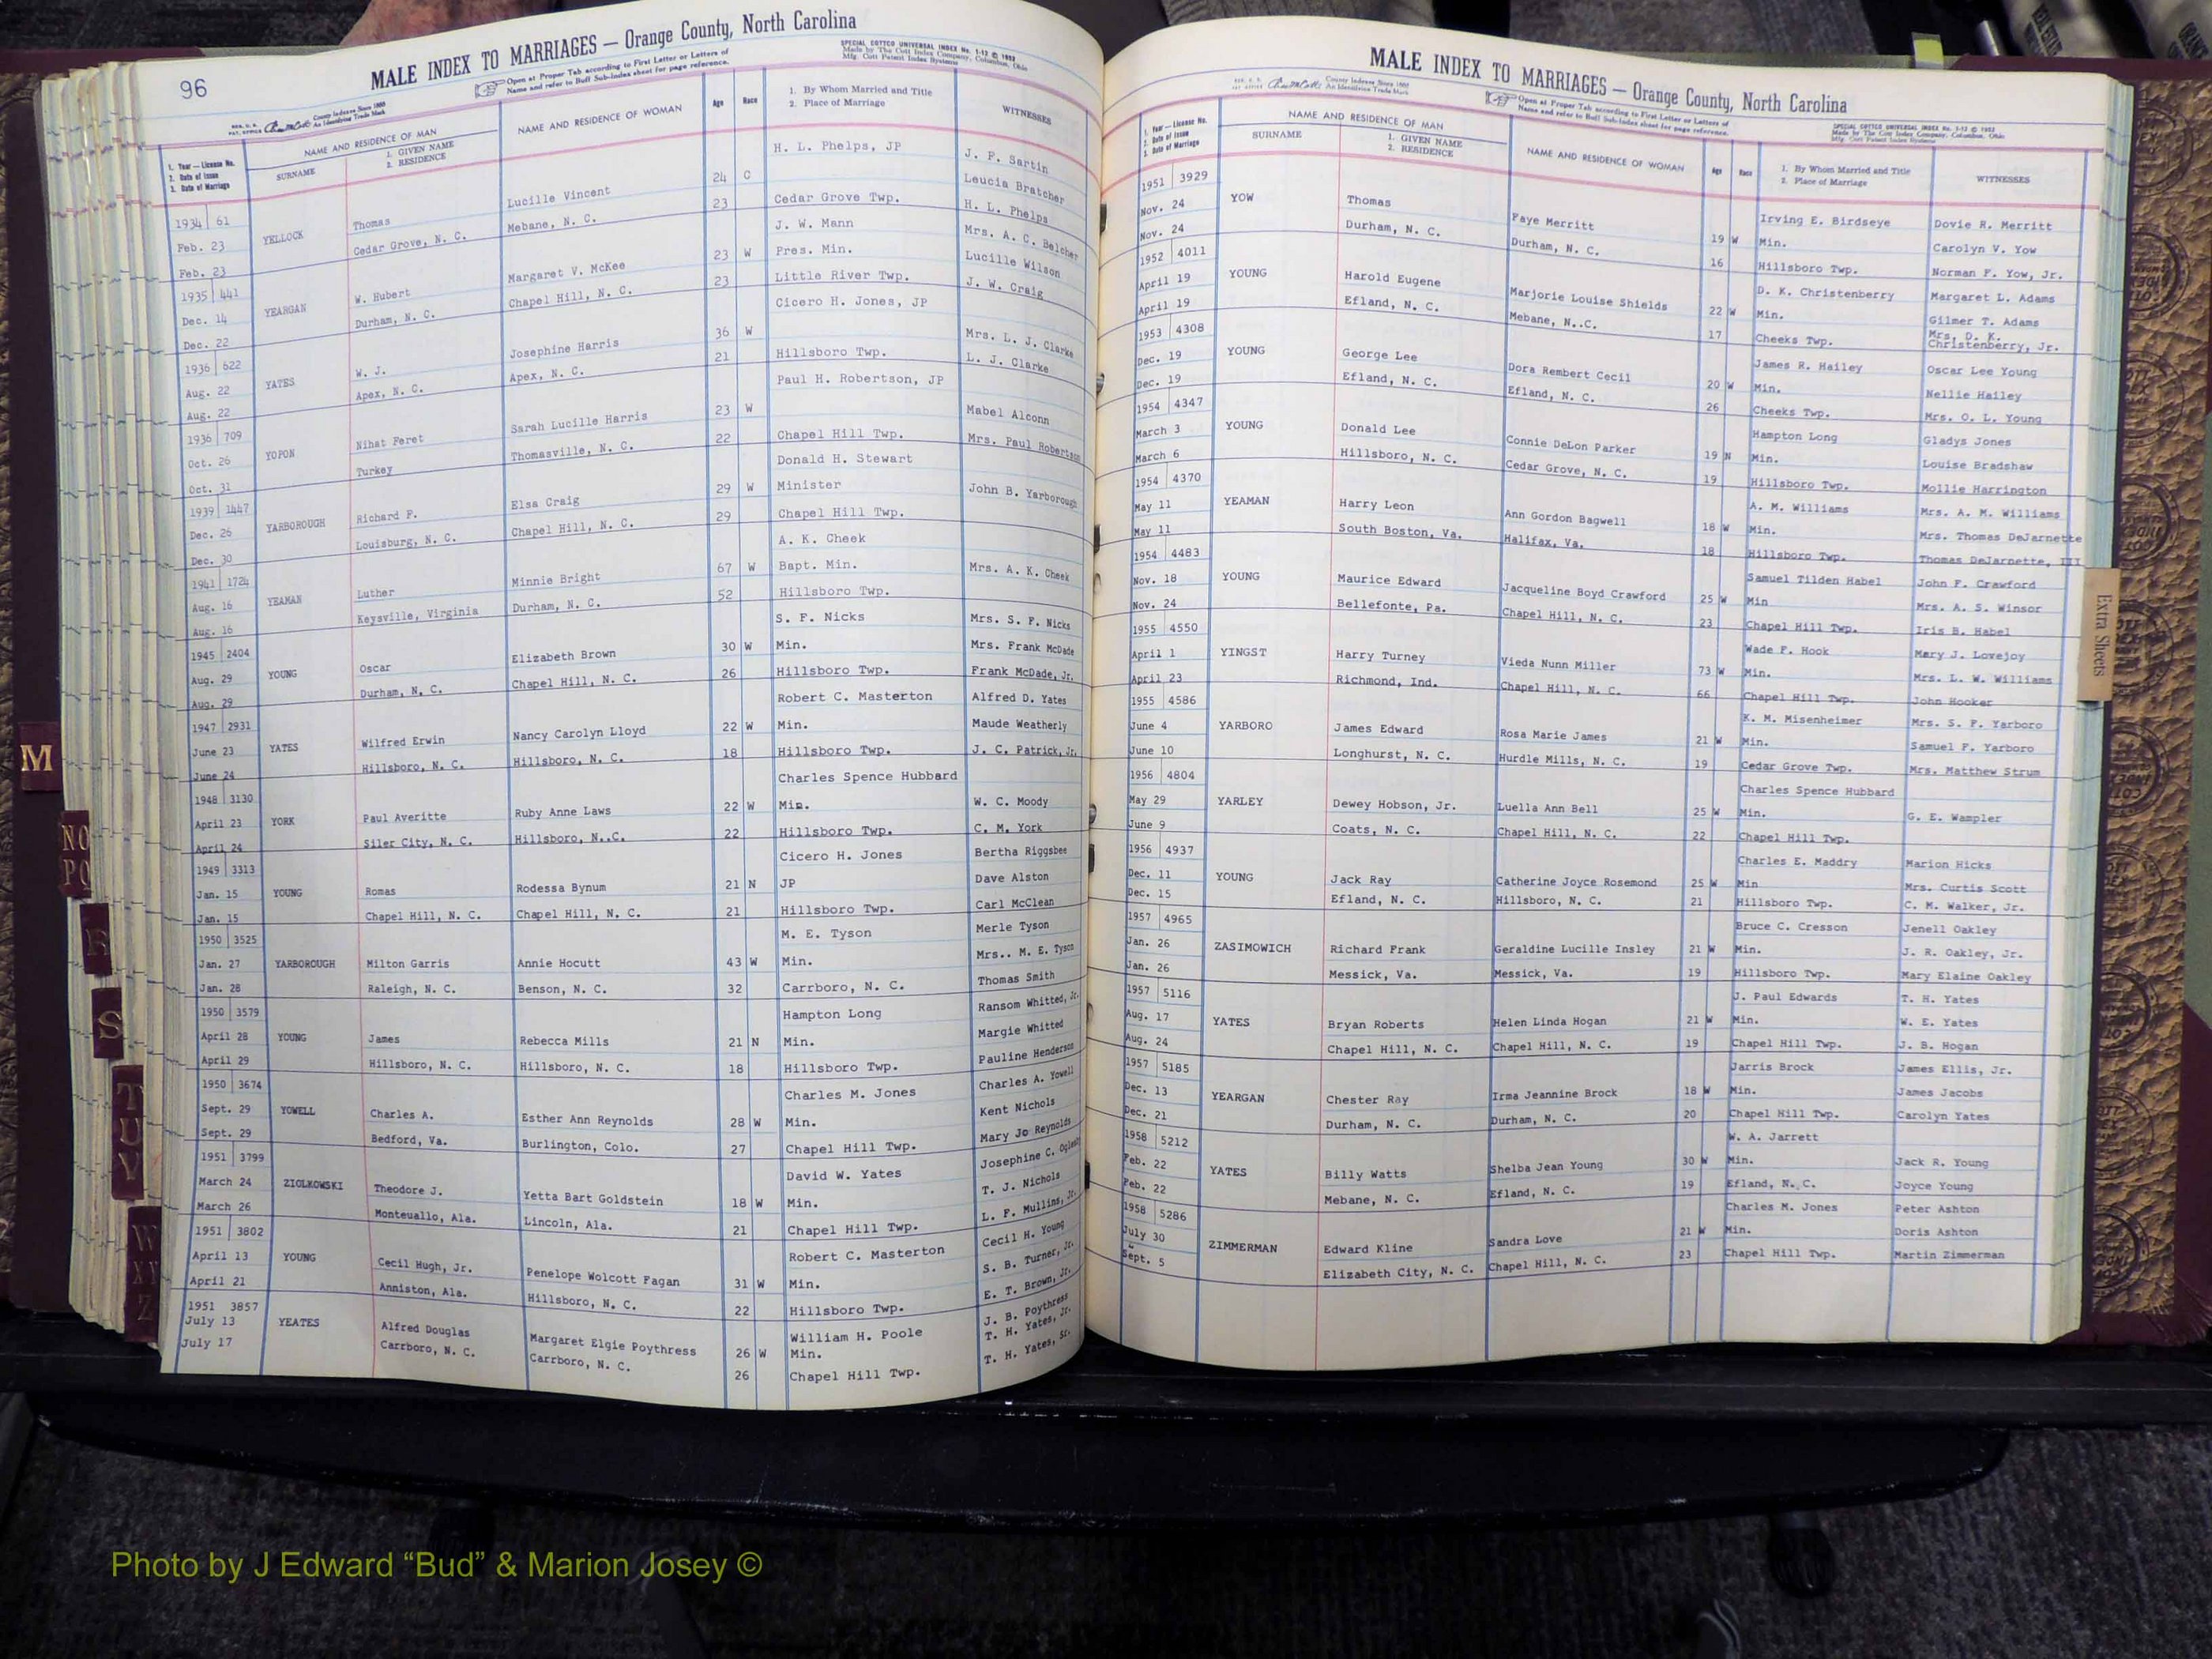 96
MALE INDEX TO MARRIAGES — Orange County, North Carolina
Open at Proper Tab according to First Letter or Letters of
Name and refer to Buff Sub-Index sheet for page reference.
SPECIAL COTTCO UNIVERSAL INDEX No. 1-12 © 1952
Made by The Cott Index Company, Columbus, Ohio
Mfg. Cott Patent Index Systems
County Indexes Since 1888
An Identifying Trade Mark
1. Year — License No.
2. Date of Issue
3. Date of Marriage
NAME AND RESIDENCE OF MAN
SURNAME
1. GIVEN NAME
2. RESIDENCE
NAME AND RESIDENCE OF WOMAN
Age
Race
1. By Whom Married and Title
2. Place of Marriage
WITNESSES
1934 61 H. L. Phelps, JP J. F. Sartin
Feb. 23 YELLOCK Thomas Lucille Vincent 24 C Leucia Bratcher
Feb. 23 Cedar Grove, N. C. Mebane, N. C. 23 Cedar Grove Twp. H. L. Phelps
1935 441 J. W. Mann Mrs. A. C. Belcher
Dec. 14 YEARGAN W. Hubert Margaret V. McKee 23 W Pres. Min. Lucille Wilson
Dec. 22 Durham, N. C. Chapel Hill, N. C. 23 Little River Twp. J. W. Craig
1936 622 Cicero H. Jones, JP
Aug. 22 YATES W. J. Josephine Harris 36 W Mrs. L. J. Clarke
Aug. 22 Apex, N. C. Apex, N. C. 21 Hillsboro Twp. L. J. Clarke
1936 709 Paul H. Robertson, JP
Oct. 26 YOPON Nihat Feret Sarah Lucille Harris 23 W Mabel Alconn
Oct. 31 Turkey Thomasville, N. C. 22 Chapel Hill Twp. Mrs. Paul Robertson
1939 1447 Donald H. Stewart
Dec. 26 YARBOROUGH Richard F. Elsa Craig 29 W Minister John B. Yarborough
Dec. 30 Louisburg, N. C. Chapel Hill, N. C. 29 Chapel Hill Twp.
1941 1724 A. K. Cheek
Aug. 16 YEAMAN Luther Minnie Bright 67 W Bapt. Min. Mrs. A. K. Cheek
Aug. 16 Keysville, Virginia Durham, N. C. 52 Hillsboro Twp.
1945 2404 S. F. Nicks Mrs. S. F. Nicks
Aug. 29 YOUNG Oscar Elizabeth Brown 30 W Min. Mrs. Frank McDade
Aug. 29 Durham, N. C. Chapel Hill, N. C. 26 Hillsboro Twp. Frank McDade, Jr.
1947 2931 Robert C. Masterton Alfred D. Yates
June 23 YATES Wilfred Erwin Nancy Carolyn Lloyd 22 W Min. Maude Weatherly
June 24 Hillsboro, N. C. Hillsboro, N. C. 18 Hillsboro Twp. J. C. Patrick, Jr.
1948 3130 Charles Spence Hubbard
April 23 YORK Paul Averitte Ruby Anne Laws 22 W Min. W. C. Moody
April 24 Siler City, N. C. Hillsboro, N..C. 22 Hillsboro Twp. C. M. York
1949 3313 Cicero H. Jones Bertha Riggsbee
Jan. 15 YOUNG Romas Rodessa Bynum 21 N JP Dave Alston
Jan. 15 Chapel Hill, N. C. Chapel Hill, N. C. 21 Hillsboro Twp. Carl McClean
1950 3525 M. E. Tyson Merle Tyson
Jan. 27 YARBOROUGH Milton Garris Annie Hocutt 43 W Min. Mrs.. M. E. Tyson
Jan. 28 Raleigh, N. C. Benson, N. C. 32 Carrboro, N. C. Thomas Smith
1950 3579 Hampton Long Ransom Whitted, Jr.
April 28 YOUNG James Rebecca Mills 21 N Min. Margie Whitted
April 29 Hillsboro, N. C. Hillsboro, N. C. 18 Hillsboro Twp. Pauline Henderson
1950 3674 Charles M. Jones Charles A. Yowell
Sept. 29 YOWELL Charles A. Esther Ann Reynolds 28 W Min. Kent Nichols
Sept. 29 Bedford, Va. Burlington, Colo. 27 Chapel Hill Twp. Mary Jo Reynolds
1951 3799 David W. Yates Josephine C.
March 24 ZIOLKOWSKI Theodore J. Yetta Bart Goldstein 18 W Min. T. J. Nichols
March 26 Monteuallo, Ala. Lincoln, Ala. 21 Chapel Hill Twp. L. F. Mullins, Jr.
1951 3802 Robert C. Masterton Cecil H. Young
April 13 YOUNG Cecil Hugh, Jr. Penelope Wolcott Fagan 31 W Min. S. B. Turner, Jr.
April 21 Anniston, Ala. Hillsboro, N. C. 22 Hillsboro Twp. E. T. Brown, Jr.
1951 3857 William H. Poole J. B. Poythress
July 13 YEATES Alfred Douglas Margaret Elgie Poythress 26 W Min. T. H. Yates, Jr.
July 17 Carrboro, N. C. Carrboro, N. C. 26 Chapel Hill Twp. T. H. Yates, Sr.
MALE INDEX TO MARRIAGES — Orange County, North Carolina
County Indexes Since 1888
An Identifying Trade Mark
Open at Proper Tab according to First Letter or Letters of
Name and refer to Buff Sub-Index sheet for page reference.
SPECIAL COTTCO UNIVERSAL INDEX No. 1-12 © 1952
Made by The Cott Index Company, Columbus, Ohio
Mfg. Cott Patent Index Systems
1. Year — License No.
2. Date of Issue
3. Date of Marriage
NAME AND RESIDENCE OF MAN
SURNAME
1. GIVEN NAME
2. RESIDENCE
NAME AND RESIDENCE OF WOMAN
Age
Race
1. By Whom Married and Title
2. Place of Marriage
WITNESSES
1951 3929 Irving E. Birdseye Dovie R. Merritt
Nov. 24 YOW Thomas Faye Merritt 19 W Min. Carolyn V. Yow
Nov. 24 Durham, N. C. Durham, N. C. 16 Hillsboro Twp. Norman F. Yow, Jr.
1952 4011 D. K. Christenberry Margaret L. Adams
April 19 YOUNG Harold Eugene Marjorie Louise Shields 22 W Min. Gilmer T. Adams
April 19 Efland, N. C. Mebane, N..C. 17 Cheeks Twp. Mrs. D. K. Christenberry, Jr.
1953 4308 James R. Hailey Oscar Lee Young
Dec. 19 YOUNG George Lee Dora Rembert Cecil 20 W Min. Nellie Hailey
Dec. 19 Efland, N. C. Efland, N. C. 26 Cheeks Twp. Mrs. O. L. Young
1954 4347 Hampton Long Gladys Jones
March 3 YOUNG Donald Lee Connie DeLon Parker 19 N Min. Louise Bradshaw
March 6 Hillsboro, N. C. Cedar Grove, N. C. 19 Hillsboro Twp. Mollie Harrington
1954 4370 A. M. Williams Mrs. A. M. Williams
May 11 YEAMAN Harry Leon Ann Gordon Bagwell 18 W Min. Mrs. Thomas DeJarnette
May 11 South Boston, Va. Halifax, Va. 18 Hillsboro Twp. Thomas DeJarnette, III
1954 4483 Samuel Tilden Habel John F. Crawford
Nov. 18 YOUNG Maurice Edward Jacqueline Boyd Crawford 25 W Min Mrs. A. S. Winsor
Nov. 24 Bellefonte, Pa. Chapel Hill, N. C. 23 Chapel Hill Twp. Iris B. Habel
1955 4550 Wade F. Hook Mary J. Lovejoy
April 1 YINGST Harry Turney Vieda Nunn Miller 73 W Min. Mrs. L. W. Williams
April 23 Richmond, Ind. Chapel Hill, N. C. 66 Chapel Hill Twp. John Hooker
1955 4586 K. M. Misenheimer Mrs. S. F. Yarboro
June 4 YARBORO James Edward Rosa Marie James 21 W Min. Samuel F. Yarboro
June 10 Longhurst, N. C. Hurdle Mills, N. C. 19 Cedar Grove Twp. Mrs. Matthew Strum
1956 4804 Charles Spence Hubbard
May 29 YARLEY Dewey Hobson, Jr. Luella Ann Bell 25 W Min. G. E. Wampler
June 9 Coats, N. C. Chapel Hill, N. C. 22 Chapel Hill Twp.
1956 4937 Charles E. Maddry Marion Hicks
Dec. 11 YOUNG Jack Ray Catherine Joyce Rosemond 25 W Min Mrs. Curtis Scott
Dec. 15 Efland, N. C. Hillsboro, N. C. 21 Hillsboro Twp. C. M. Walker, Jr.
1957 4965 Bruce C. Cresson Jenell Oakley
Jan. 26 ZASIMOWICH Richard Frank Geraldine Lucille Insley 21 W Min. J. R. Oakley, Jr.
Jan. 26 Messick, Va. Messick, Va. 19 Hillsboro Twp. Mary Elaine Oakley
1957 5116 J. Paul Edwards T. H. Yates
Aug. 17 YATES Bryan Roberts Helen Linda Hogan 21 W Min. W. E. Yates
Aug. 24 Chapel Hill, N. C. Chapel Hill, N. C. 19 Chapel Hill Twp. J. B. Hogan
1957 5185 Jarris Brock James Ellis, Jr.
Dec. 13 YEARGAN Chester Ray Irma Jeannine Brock 18 W Min. James Jacobs
Dec. 21 Durham, N. C. Durham, N. C. 20 Chapel Hill Twp. Carolyn Yates
1958 5212 W. A. Jarrett
Feb. 22 YATES Billy Watts Shelba Jean Young 30 W Min. Jack R. Young
Feb. 22 Mebane, N. C. Efland, N. C. 19 Efland, N. C. Joyce Young
1958 5286 Charles M. Jones Peter Ashton
July 30 ZIMMERMAN Edward Kline Sandra Love 21 W Min. Doris Ashton
Sept. 5 Elizabeth City, N. C. Chapel Hill, N. C. 23 Chapel Hill Twp. Martin Zimmerman
Extra Sheets
M
NO
PQ
R
S
T
U
V
W
XY
Z
Photo by J Edward “Bud” & Marion Josey ©